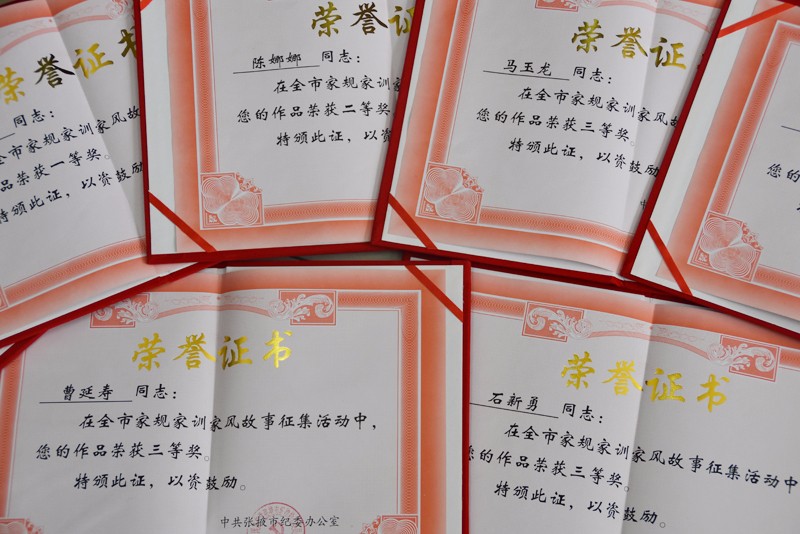 荣誉证书
同志:
全市家规家训家风故
品荣获一等奖。
特颁此证,以资鼓励
荣誉证
陈娜娜 同志:
在全市家规家训家
您的作品荣获二等奖
特颁此证,以资
荣誉证
马玉龙 同志:
在全市家规家训家风故
您的作品荣获三等奖。
特颁此证,以资鼓励
您
荣誉证书
曹延寿 同志:
在全市家规家训家风故事征集活动中,
您的作品荣获三等奖。
特颁此证,以资鼓励。
中共张掖市纪委办公室
荣誉证书
石新勇 同志:
在全市家规家训家风故事征集活动中
您的作品荣获三等奖。
特颁此证,以资鼓励。